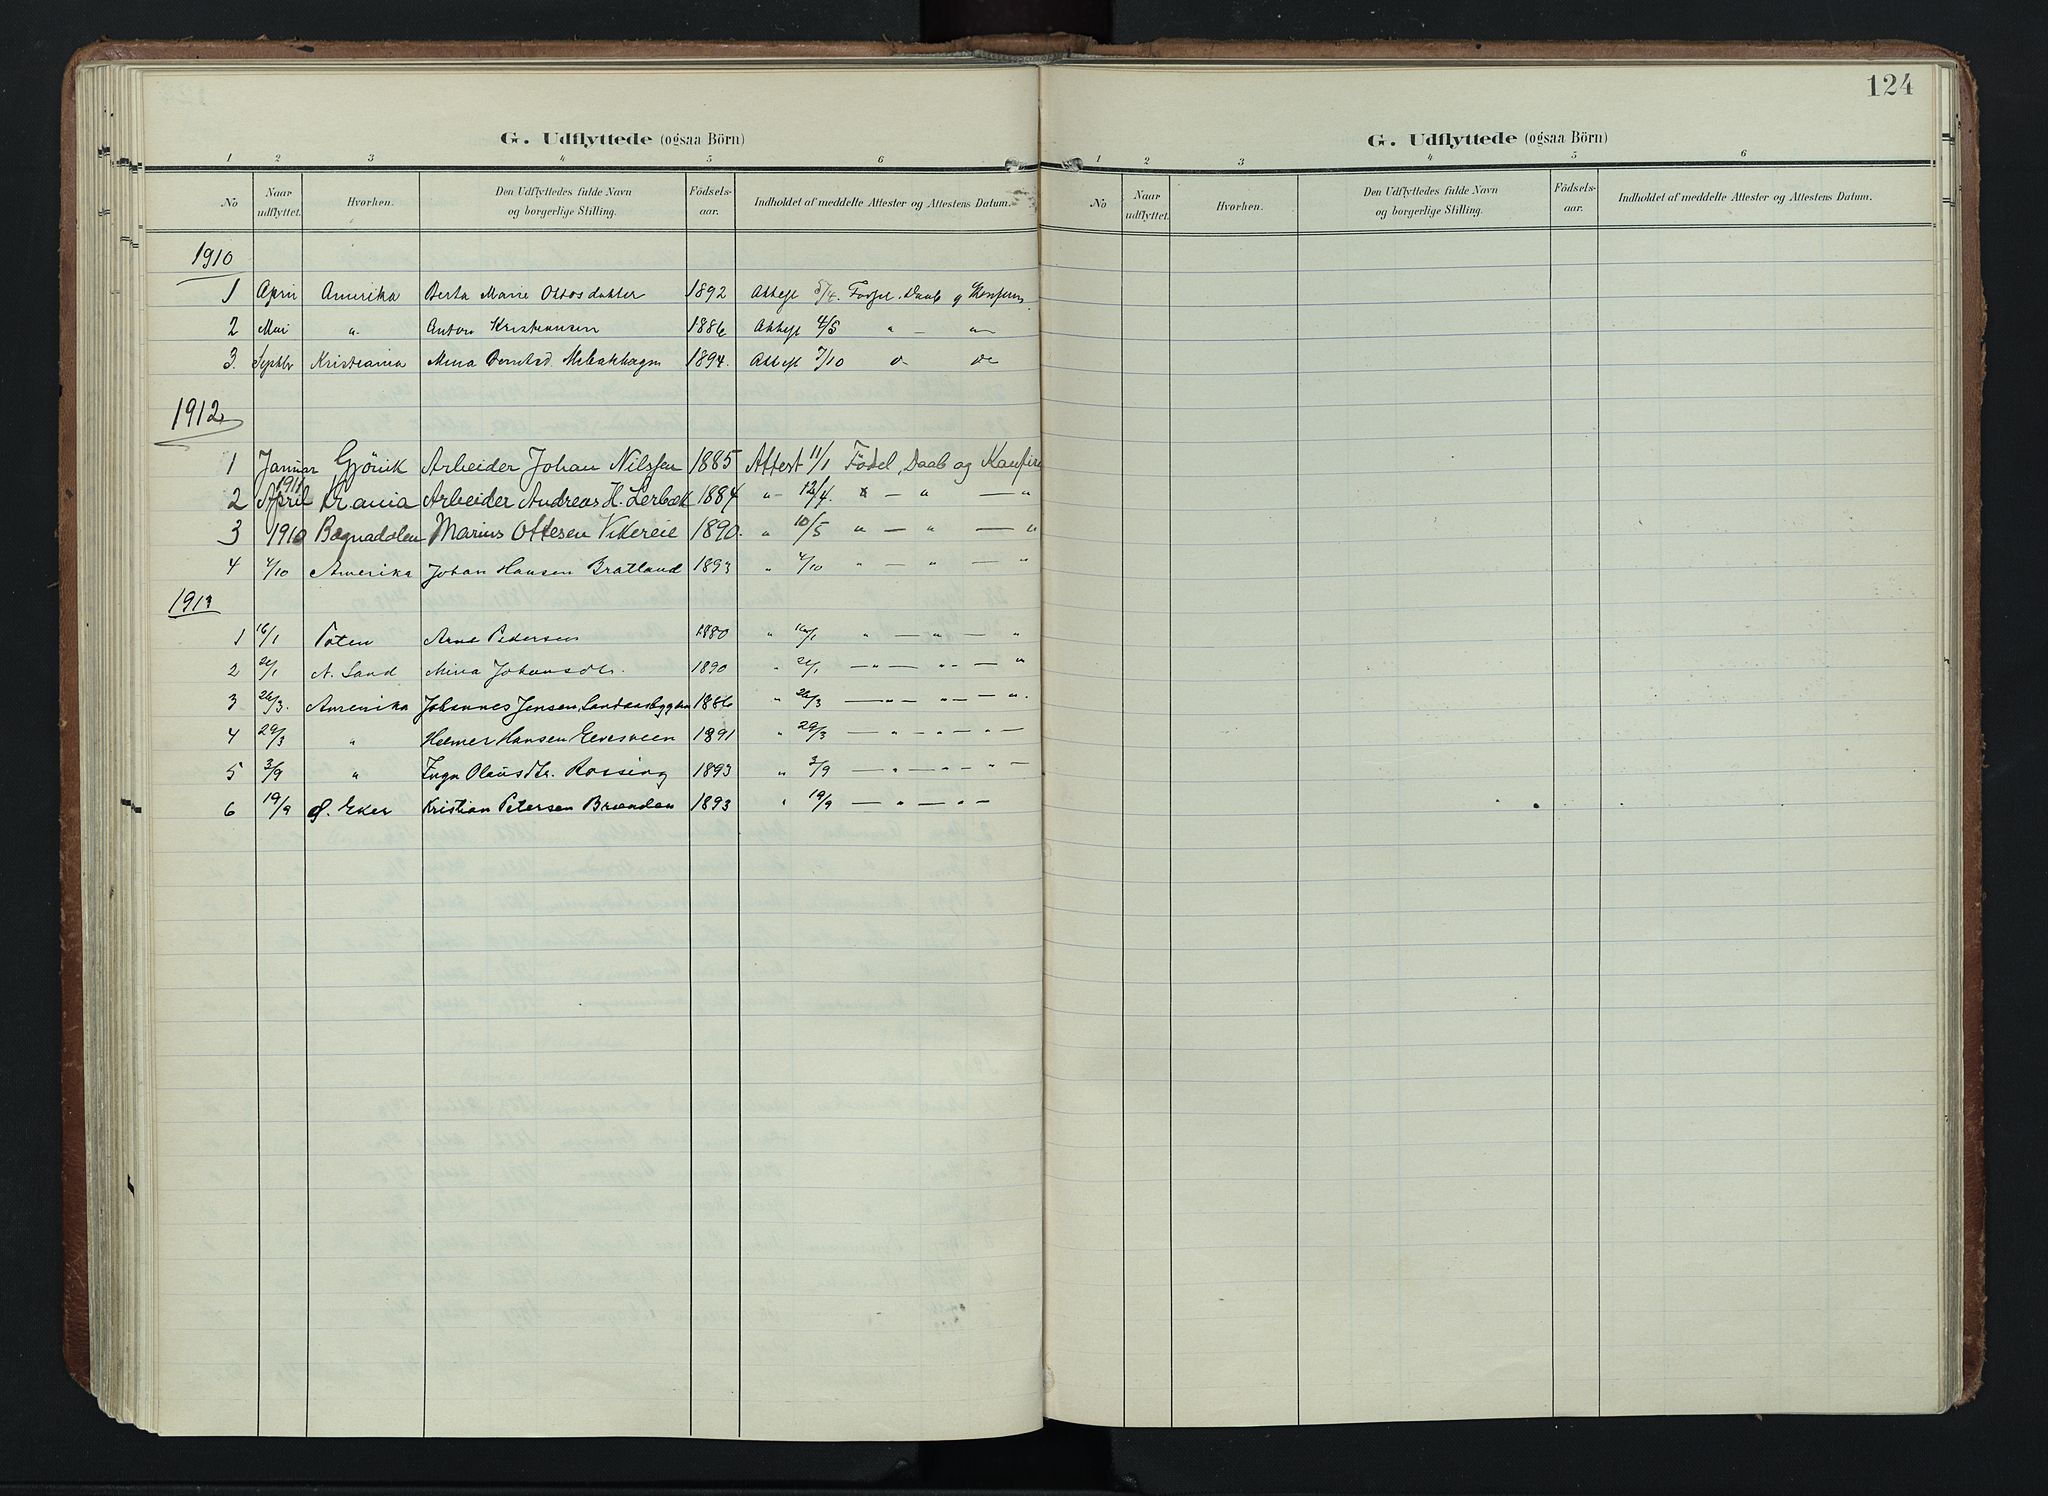 G. Udflyttede (ogsaa Börn)
1 2 3 4 5 6
No Naar udflyttet. Hvorhen. Den Udflyttedes fulde Navn og borgerlige Stilling. Födsels-aar. Indholdet af meddelte Attester og Attestens Datum.
1910
1 April Amerika Berta Marie Ottosdatter 1892 Attest 5/4. Födsel. Daab og Konfirm
2 Mai " Anton Kristiansen 1886 Attest 4/5 " — "
3. Septbr Kristiania Mina 1894. Attest 7/10 do do
1912
1 Januar Gjövik Arbeider Johan Nilssen 1885 Attest 11/1 Födsel, Daab og Konfirm
2 April 1911 Kr.ania Arbeider Andreas H. Lerbæk 1884 " 12/4. " — " — "
3 1910 Bægnadalen Marius Ottesen Vikereie 1890. " 10/5 " — " — "
4 4/10 Amerika Johan Hansen Bratland 1893 " 4/10 " — " — "
1913
1 16/1 Toten Arne Pedersen 1880 " 16/1 " — " — "
2 21/1 N. Land Mina Johansdtr. 1890 " 21/1 — " — " — "
3 26/3. Amerika Johannes Jensen 1886 " 26/3 — " — " — ".
4 29/3 " Helmer Hansen Elvesveen 1891 " 29/3 — " — " — " —
5 3/9 " Inga Olausdtr. Rossing 1893 " 3/9 — " — " — " —
6 19/9 Ø. Eker Kristian Petersen Brænden 1893 " 19/9 — " — " —
124
G. Udflyttede (ogsaa Börn)
1 2 3 4 5 6
No Naar udflyttet. Hvorhen. Den Udflyttedes fulde Navn og borgerlige Stilling. Födsels-aar. Indholdet af meddelte Attester og Attestens Datum.